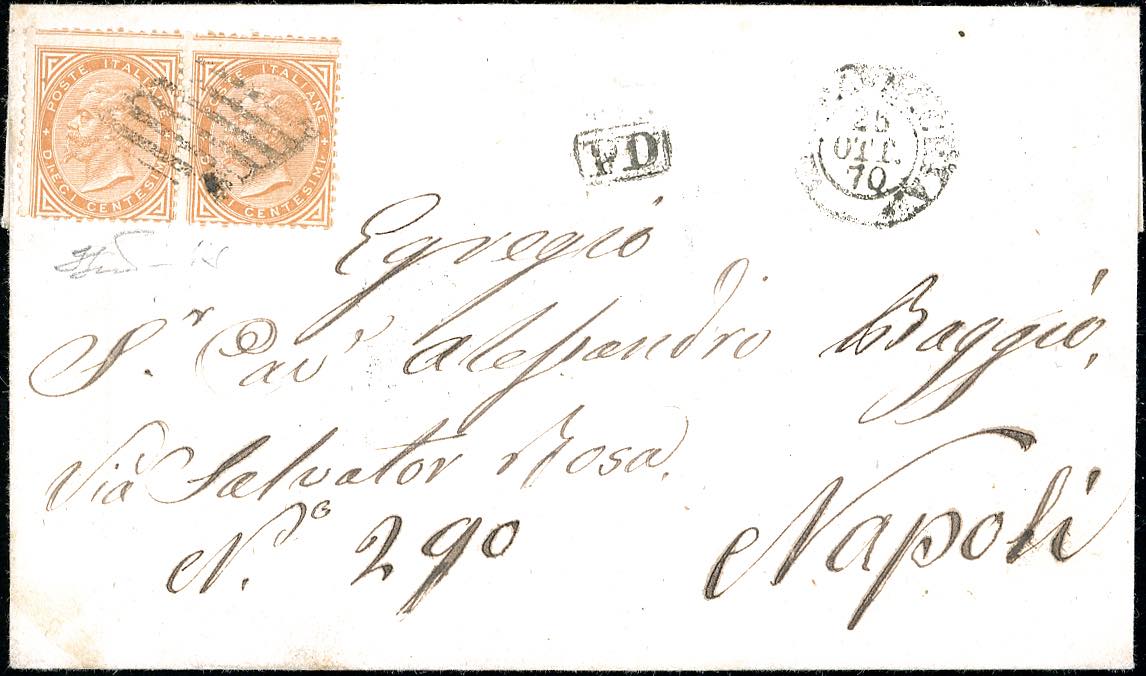 POSTE ITALIANE
DIECI CENTESIMI
POSTE ITALIANE
DIECI CENTESIMI
PD
25
OTT.
70
Egregio
S.r Cav Alessandro Baggio,
Via Salvator Rosa,
N.o 290 Napoli